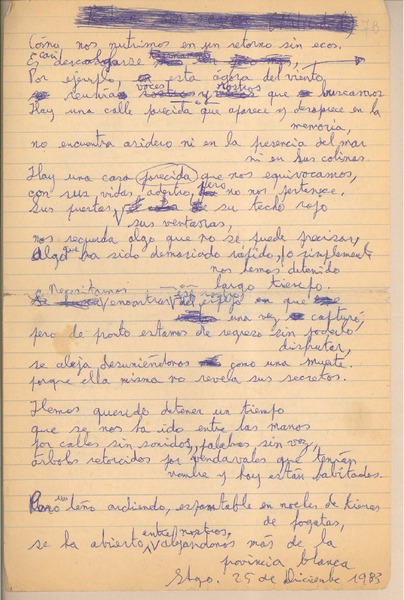 78
Cómo nos nutrimos en un retorno sin ecos.
Es casi descolgarse
Por ejemplo, esta ágora del viento
reunirá voces y rostros que buscamos
Hay una calle parecida que aparece y desaparece en la
memoria,
no encuentra asidero ni en la presencia del mar
ni en sus colinas.
Hay una casa parecida que nos equivocamos,
con sus vidas adentro, pero no nos pertenece.
Sus puertas, su techo rojo
sus ventanas,
nos recuerda algo que no se puede precisar,
Algo que ha sido demasiado rápido, o simplemente
nos hemos detenido
largo tiempo.
Necesitamos encontrar el espejo en que
una vez capturó,
pero de pronto estamos de regreso sin poderlo
disfrutar,
se aleja desuniéndonos como una muerte.
porque ella misma no revela sus secretos.
Hemos querido detener un tiempo
que se nos ha ido entre las manos
por calles sin sonidos, palabras sin voz,
árboles retorcidos por vendavales que tenían
nombre y hoy están habitados.
Pero un leño ardiendo, espantable en noches de tierras
de fogatas,
se ha abierto entre nosotros, alejándonos más de la
provincia blanca
Stgo. 25 de Diciembre 1983